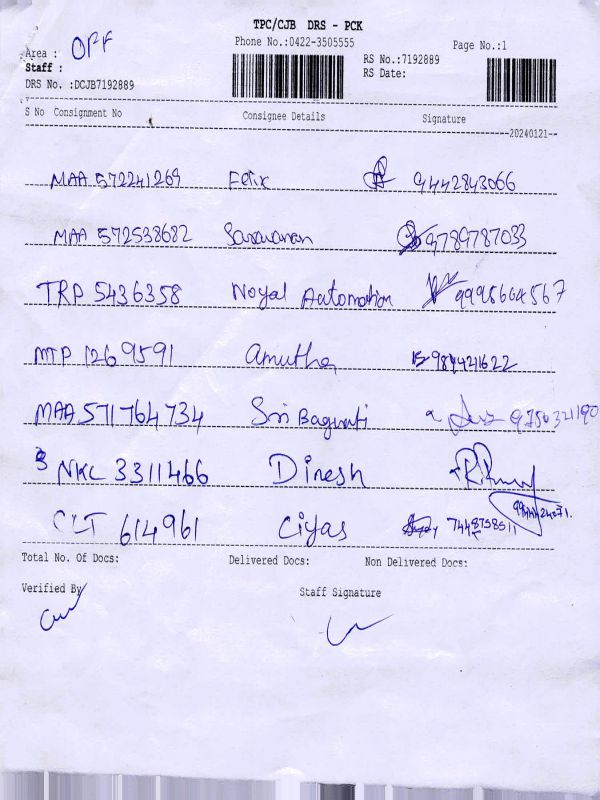 TPC/CJB DRS - PCK
Phone No.:0422-3505555
Page No.:1
Area : OFF
Staff :
RS No.:7192889
RS Date:
DRS No. :DCJB7192889
S No Consignment No Consignee Details Signature
20240121
MAA 572241269 Felix 9442843066
MAA 572538682 Saravanan 9789787033
TRP 5436358 Noyal Automation 9995664567
MTP 1269591 Amutha 984421622
MAA 571764734 Sri Bagwati 9750321190
NKL 3311466 Dinesh
CLT 614961 Ciyas 7448758511
Total No. Of Docs: Delivered Docs: Non Delivered Docs:
Verified By Staff Signature